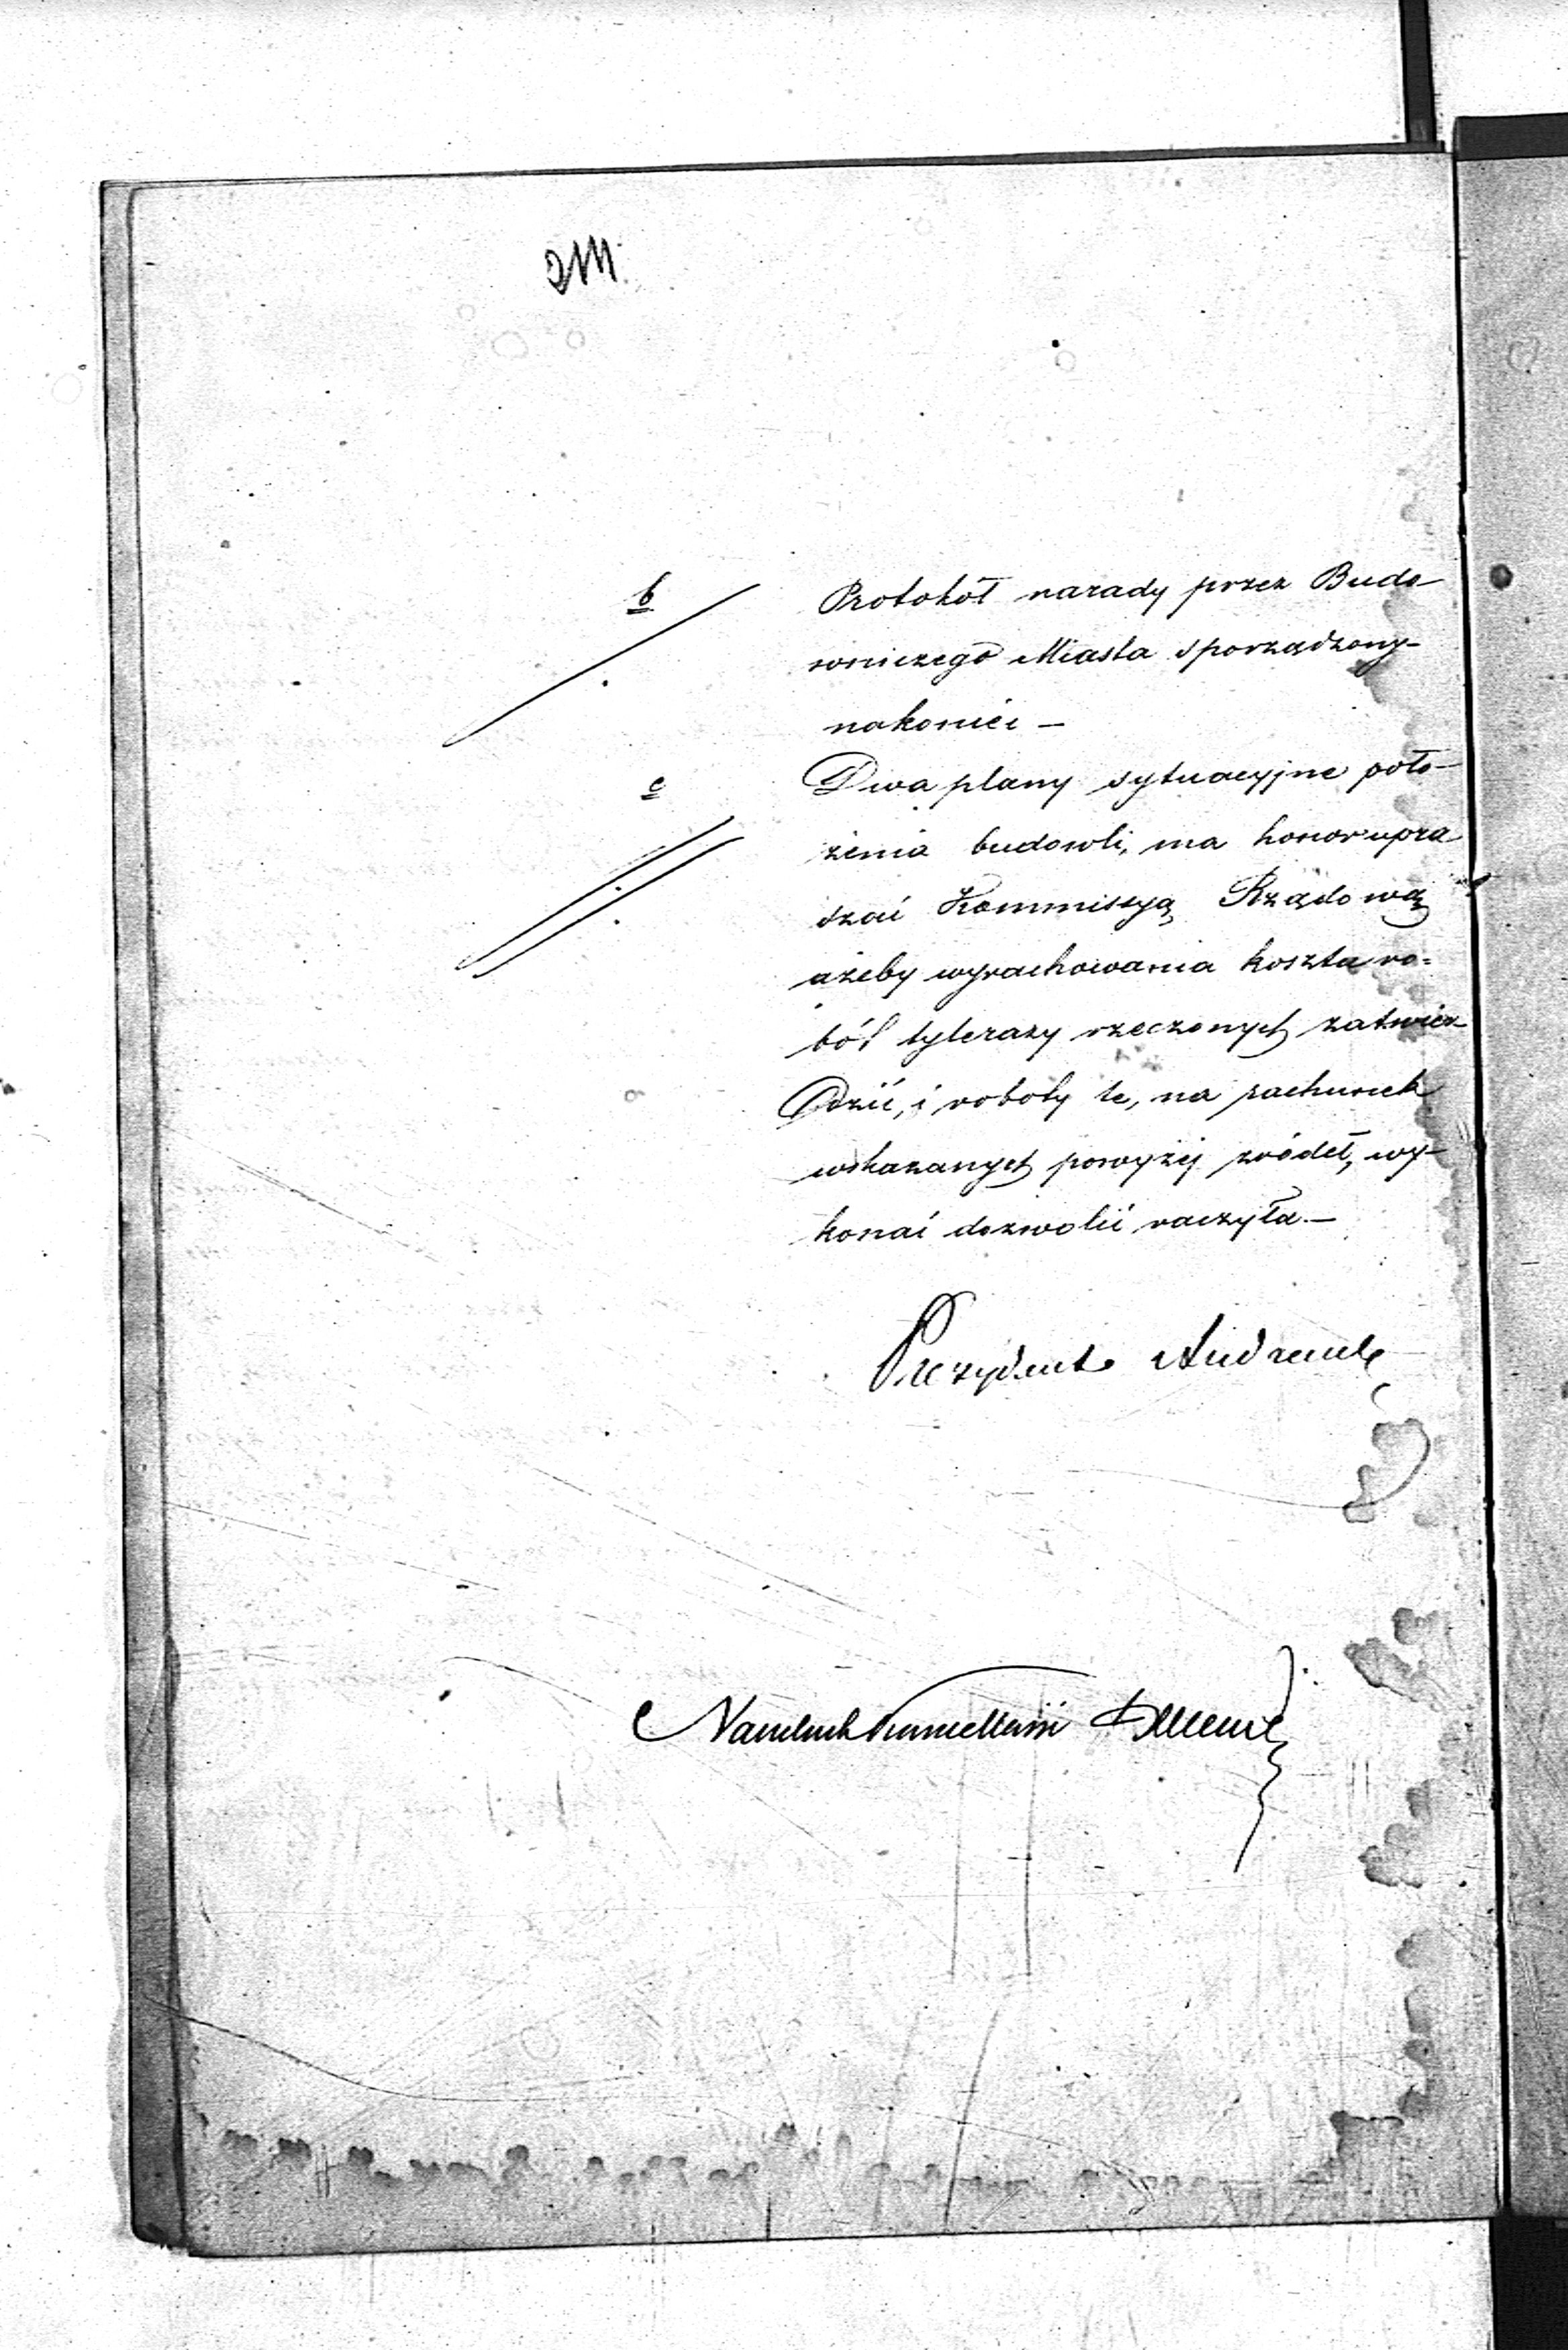 b
Protokół narady przez Budo
wniczego Miasta sporządzony
nakoniec —
c
Dwa plany sytuacyjne poło-
żenia budowli, ma honor upra
szać Kommissyą Rządową
ażeby wyrachowania koszta ro=
bót tylerazy rzeczonych zatwier
dzić, i roboty te, na rachunek
wskazanych powyżej źródeł, wy-
konać dozwolić raczyła.—
Prezydent
Naczelnik Kancellarii